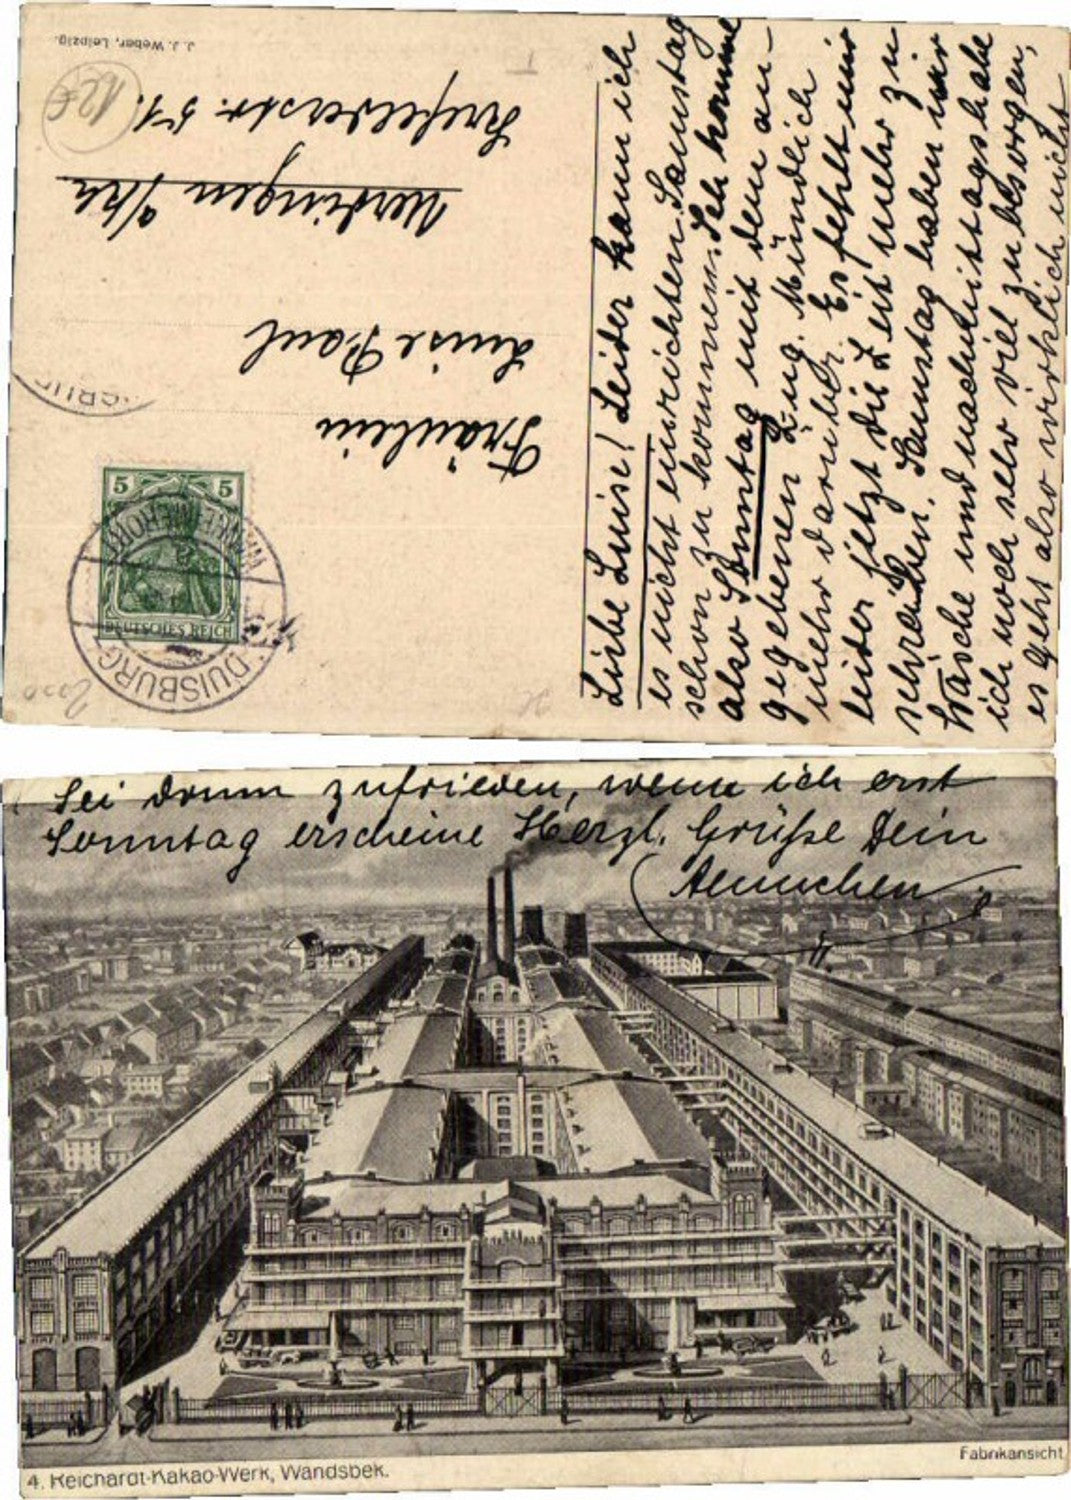 J. J. Weber, Leipzig.
12€
Fräulein
Luise Paul
Uerdingen a/Rh
Krefelderstr. 51.
5 5
DEUTSCHES REICH
DUISBURG
WANHEIMERORT
Liebe Luise! Leider kann ich
es nicht einrichten Samstag
schon zu kommen. Ich komme
also Sonntag mit dem an-
gegebenen Zug. Mündlich
mehr darüber. Es fehlt mir
leider jetzt die Zeit mehr zu
schreiben. Samstag haben wir
Wäsche und nachmittags habe
ich noch sehr viel zu besorgen,
es geht also wirklich nicht
Sei drum zufrieden, wenn ich erst
Sonntag erscheine Herzl. Grüße Dein
Aennchen
4. Reichardt-Kakao-Werk, Wandsbek.
Fabrikansicht